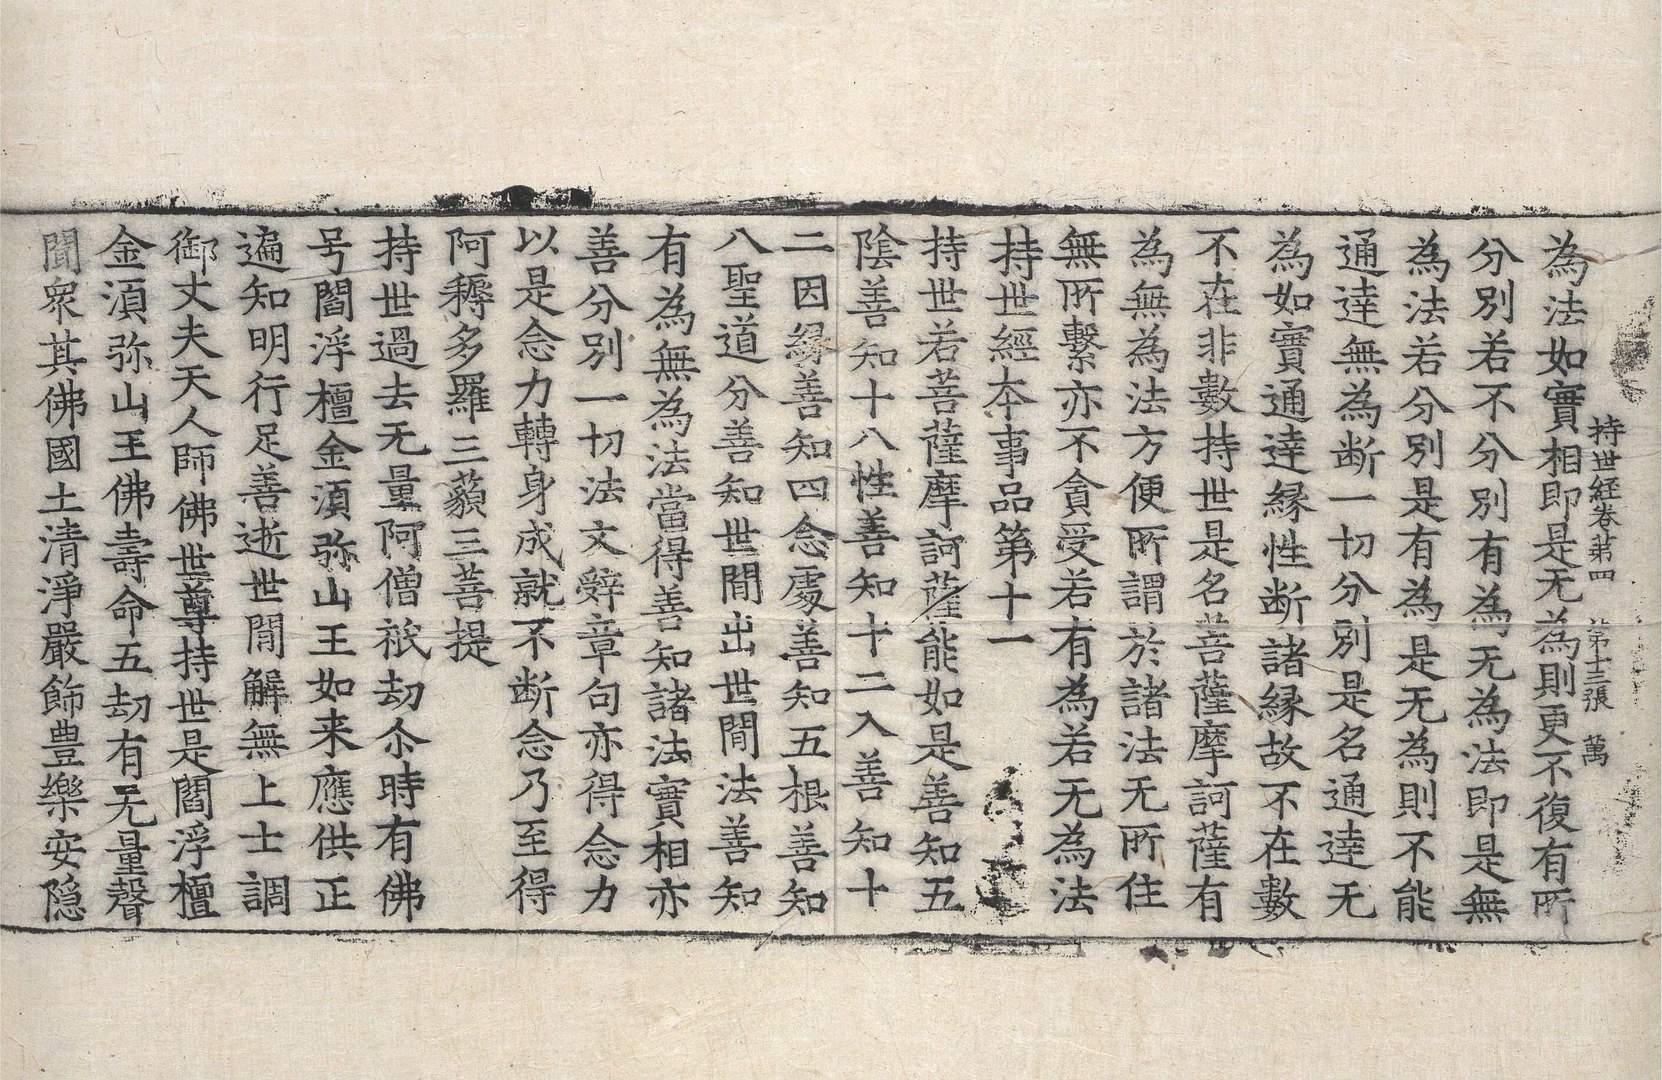 持世経卷第四　第十三張　萬
為法如實相即是无為則更不復有所
分別若不分別有為无為法即是無
為法若分別是有為是无為則不能
通達無為断一切分別是名通達无
為如實通達縁性断諸縁故不在數
不在非數持世是名菩薩摩訶薩有
為無為法方便所謂於諸法无所住
無所繫亦不貪受若有為若无為法
持世經本事品第十一
持世若菩薩摩訶薩能如是善知五
陰善知十八性善知十二入善知十
二因縁善知四念處善知五根善知
八聖道分善知世間出世間法善知
有為無為法當得善知諸法實相亦
善分別一切法文辤章句亦得念力
以是念力轉身成就不断念乃至得
阿耨多羅三藐三菩提
持世過去无量阿僧祇劫尒時有佛
号閻浮檀金湏弥山王如来應供正
遍知明行足善逝世間解無上士調
御丈夫天人師佛世尊持世是閻浮檀
金湏弥山王佛壽命五劫有无量聲
聞衆其佛國土清淨嚴飾豊樂安隠